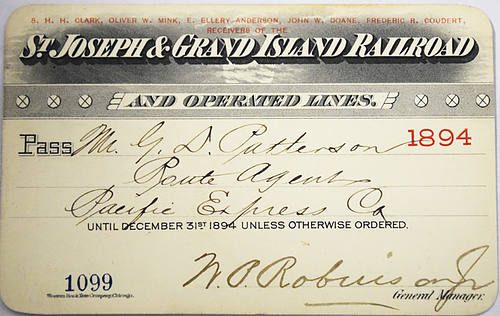 S. H. H. CLARK, OLIVER W. MINK, E. ELLERY ANDERSON, JOHN W. DOANE, FREDERIC R. COUDERT,
RECEIVERS OF THE
ST. JOSEPH & GRAND ISLAND RAILROAD
AND OPERATED LINES.
Pass Mr. G. D. Patterson 1894
Route Agent
Pacific Express Co
UNTIL DECEMBER 31ST 1894 UNLESS OTHERWISE ORDERED.
1099 W. P. Robinson Jr
Western Bank Note Company, Chicago. General Manager.